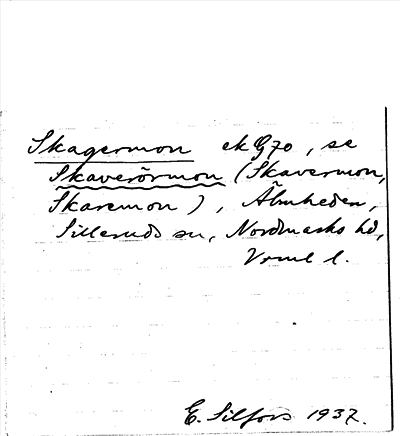 Skagermon ekG70, se
Skaverörmon (Skavermon,
Skaremon), Älmheden,
Silleruds sn, Nordmarks hd,
Vrml l.
E. Silfors 1937.